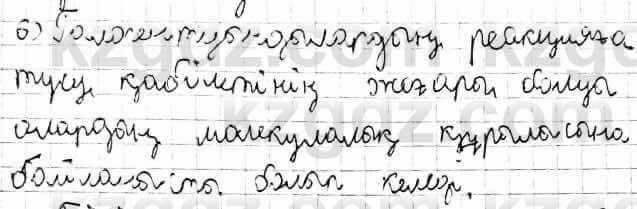 6) Галогентуындылардың реакцияға
түсу қабілетінің жоғары болуы
олардың молекулалық құрылысына
байланысты болып келеді.